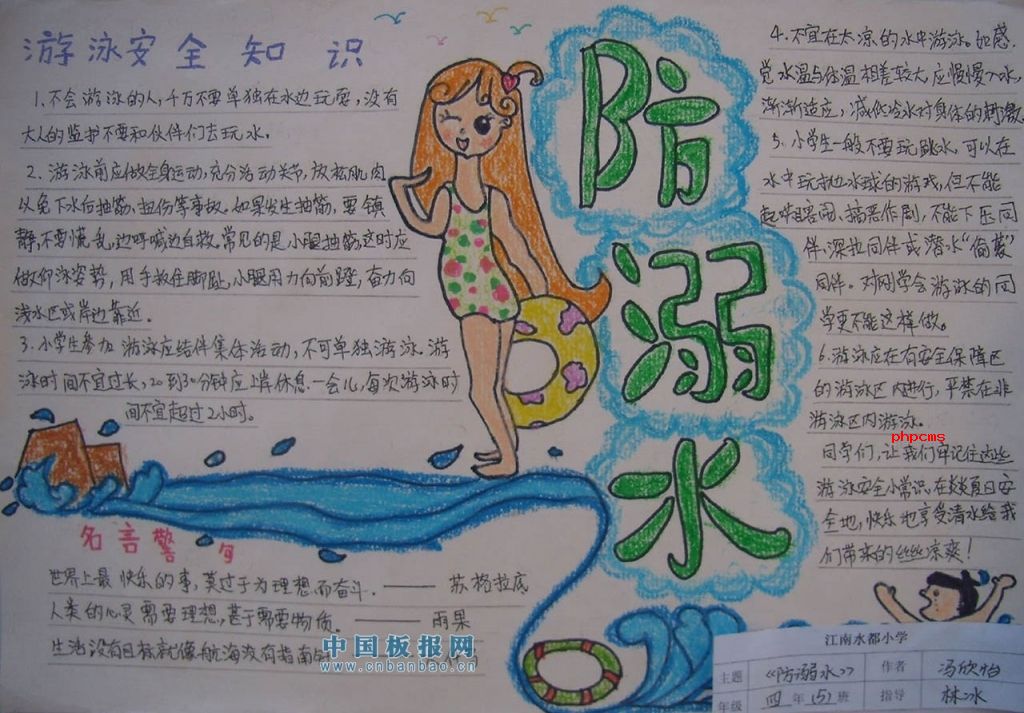 游泳安全知识
1.不会游泳的人,千万不要单独在水边玩耍,没有
大人的监护不要和伙伴们去玩水。
2.游泳前应做全身运动,充分活动关节,放松肌肉
以免下水后抽筋、扭伤等事故。如果发生抽筋,要镇
静,不要慌乱,边呼喊边自救。常见的是小腿抽筋,这时应
做仰泳姿势,用手扳住脚趾,小腿用力向前蹬,奋力向
浅水区或岸边靠近。
3.小学生参加游泳应结伴集体活动,不可单独游泳。游
泳时间不宜过长,20到30分钟应上岸休息一会儿,每次游泳时
间不宜超过2小时。
名言警句
世界上最快乐的事,莫过于为理想而奋斗.——苏格拉底
人类的心灵需要理想,甚于需要物质。——雨果
生活没有目标就像航海没有指南针
中国板报网
www.cnbanbao.cn
防
溺
水
4.不宜在太凉的水中游泳。如感
觉水温与体温相差较大,应慢慢入水,
渐渐适应,减低冷水对身体的刺激。
5.小学生一般不要玩跳水,可以在
水中玩抛水球的游戏,但不能
起哄喧闹、搞恶作剧,不能下压同
伴、深拉同伴或潜水“偷袭”
同伴。对刚学会游泳的同
学更不能这样做。
6.游泳应在有安全保障区
的游泳区内进行,严禁在非
游泳区内游泳。
phpcms
同学们,让我们牢记住这些
游泳安全小常识,在炎炎夏日安
全地,快乐地享受清水给我
们带来的丝丝凉爽!
江南水都小学
主题 《防溺水》 作者 冯欣怡
年级 四年(5)班 指导 林冰